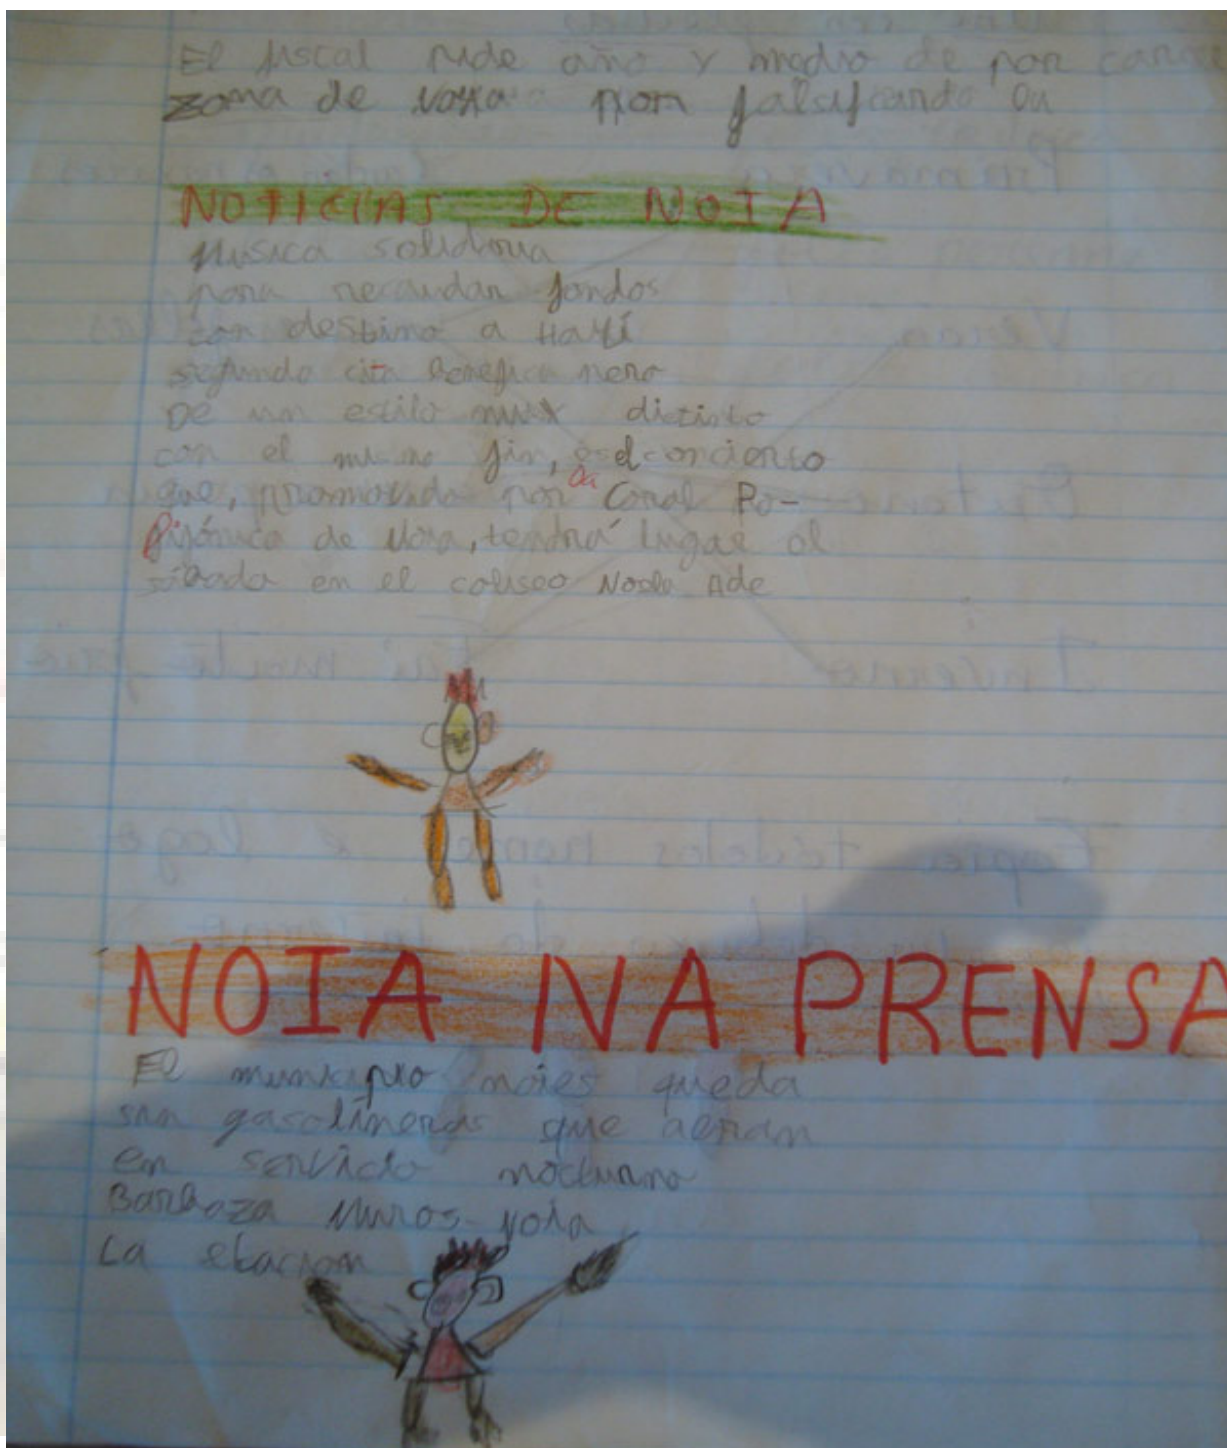 El fiscal pide año y medio de por
zona de por falsificando ou
NOTICIAS DE NOIA
Musica solidaria
para recaudar fondos
con destino a Hayí
segundo cita benefica pero
De un estilo muy distinto
con el mismo fin, es el concierto
que, promovido por la Coral Po-
lifónica de Noia, tendrá lugar al
sábado en el coliseo Noela Ade
NOIA NA PRENSA
El municipio noies queda
sin gasolineras que abran
en servicio nocturno
Barbaza Muros-Noia
La stacion